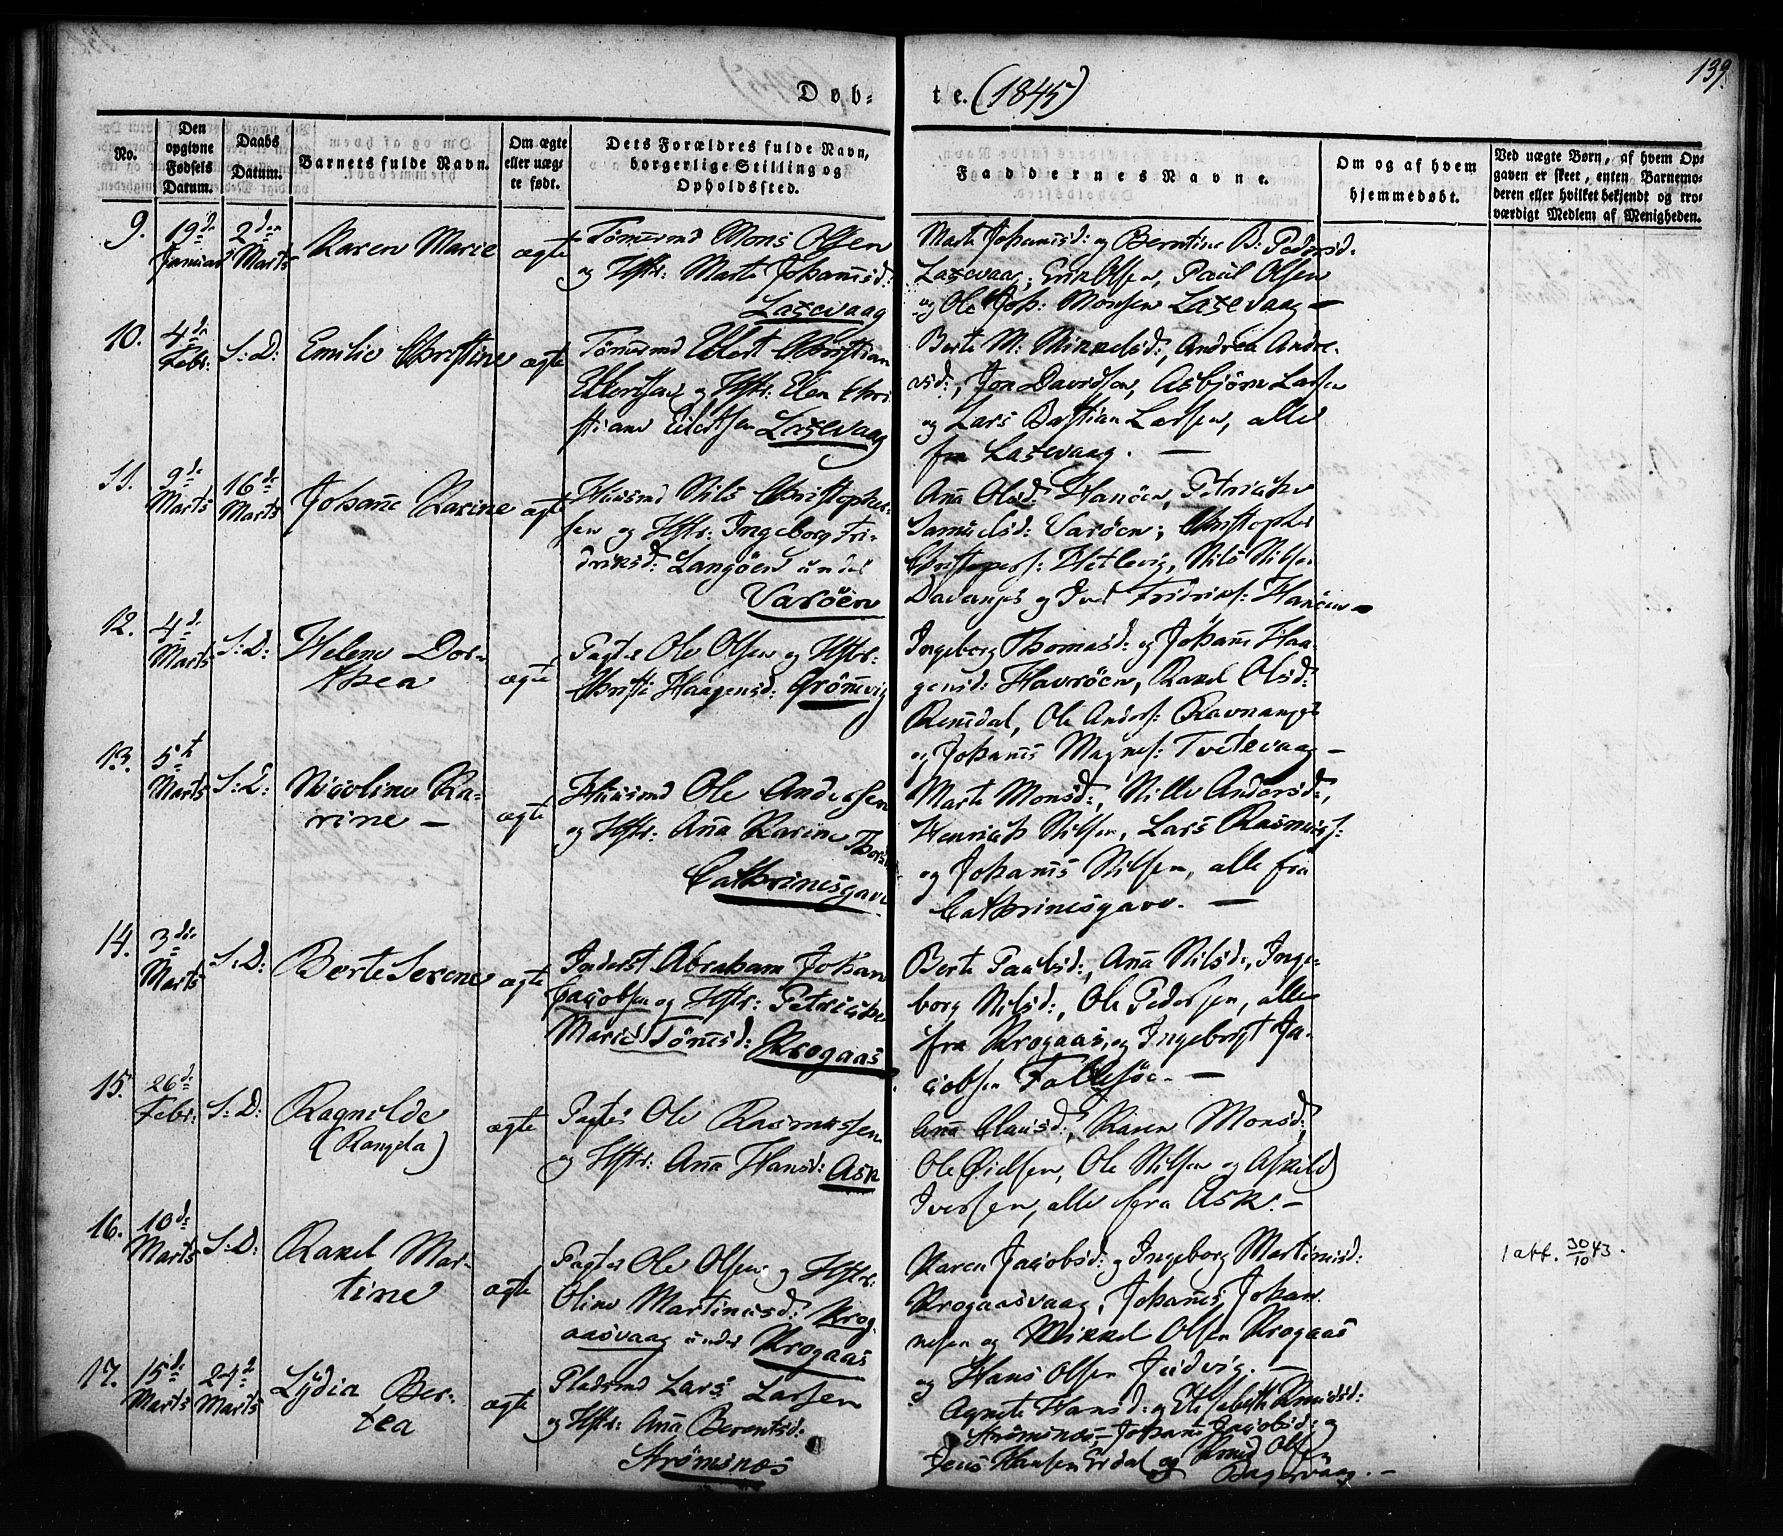 139.
Døb- te. (1845)
No.
Den opgivne Fødsels Datum.
Daabs Datum.
Barnets fulde Navn.
Om ægte eller uægte født.
Dets Forældres fulde Navn, borgerlige Stilling og Opholdssted.
Faddernes Navne.
Om og af hvem hjemmedøbt.
Ved uægte Børn, af hvem Opgaven er skeet, enten Barnemoderen eller hvilket bekjendt og troværdigt Medlem af Menigheden.
9. 19de Januar 2den Marts Karen Marie ægte
Tømrmd Mons Olsen
og Hstr: Marte Johannisd:
Laxevaag
Marte Johannisd: og Berntine B: Pedersd.
Laxevaag, Erik Olsen, Paul Olsen
og Ole Joh: Monsen Laxevaag —
10. 4de Febr: S: D: Emilie Christine ægte
Tømrmd Christian
og Hstr: Elen Chri-
stiane Laxevaag
Berte M: Mikkelsd:, Andrea Andre-
asd:, Jon Davidsen, Asbjørn Larsen
og Lars Bastian Larsen, alle
fra Laxevaag. —
11. 9de Marts 16de Marts Johanne Karine ægte
Huusmd Nils Christopher-
sen og Hstr: Ingeborg Fri-
driksd: Langøen under
Varøen
Anna Olsd: Hanøen, Petricke
Samuelsd: Varøen, Christopher
Christophers: Hetlevig, Nils Nilsen
Davanger og Fridriks: Hanøen —
12. 4de Marts S: D: Helene Dor-
thea ægte
Pagter Ole Olsen og Hstr:
Christi Haagensd:
Ingeborg Thomasd: og Johanne Haa-
gensd: Havrøen, Rakel Olsd:
Ole Anders: Ravnanger
og Johannis Magnes: Tvetevaag —
13. 5te Marts S: D: Nicoline Ka-
rine — ægte
Huusmd Ole Andersen
og Hstr: Anna Karine
Cathrinesgave
Marte Monsd:, Nille Andersd:,
Henrich Nilsen, Lars Rasmuss:
og Johannis Nilsen, alle fra
Cathrinesgave. —
14. 3die Marts S: D: Berte Serene ægte
Inderst Abraham Johan
Jacobsen og Hstr: Petricke
Marie Tønnisd: Krogaas
Berte Anna Nilsd:, Inge-
borg Nilsd:, Ole Pedersen, alle
fra Krogaas, og Ingebrigt Ja-
cobsen —
15. 26de Febr: S: D: Ragnilde
(Rangela) ægte
Pagter Ole Rasmussen
og Hstr: Anna Hansd: Ask
Anna Clausd:, Karen Monsd:,
Ole Nilsen og Askild
Iversen, alle fra Ask. —
16. 10de Marts S: D: Rakel Mar-
tine ægte
Pagter Ole Olsen og Hstr:
Oline Martinusd: Krog-
aasvaag under Krogaas
Karen Jacobsd: og Ingeborg Martinusd:
Krogaasvaag, Johannes Johan-
nesen og Mikkel Olsen Krogaas
og Hans Olsen Juvig. —
1 att. 30/10 43.
17. 15de Marts 24de Marts Lydia Ber-
tea ægte
Pladsmd Lars Larsen
og Hstr: Anna Berentsd:
Strømsnæs
Agnete Hansd: og Elisabeth Knudsd:
Strømsnæs, Johanne Jacobsd: og
Jens Hansen Erdal og Knud Olsen